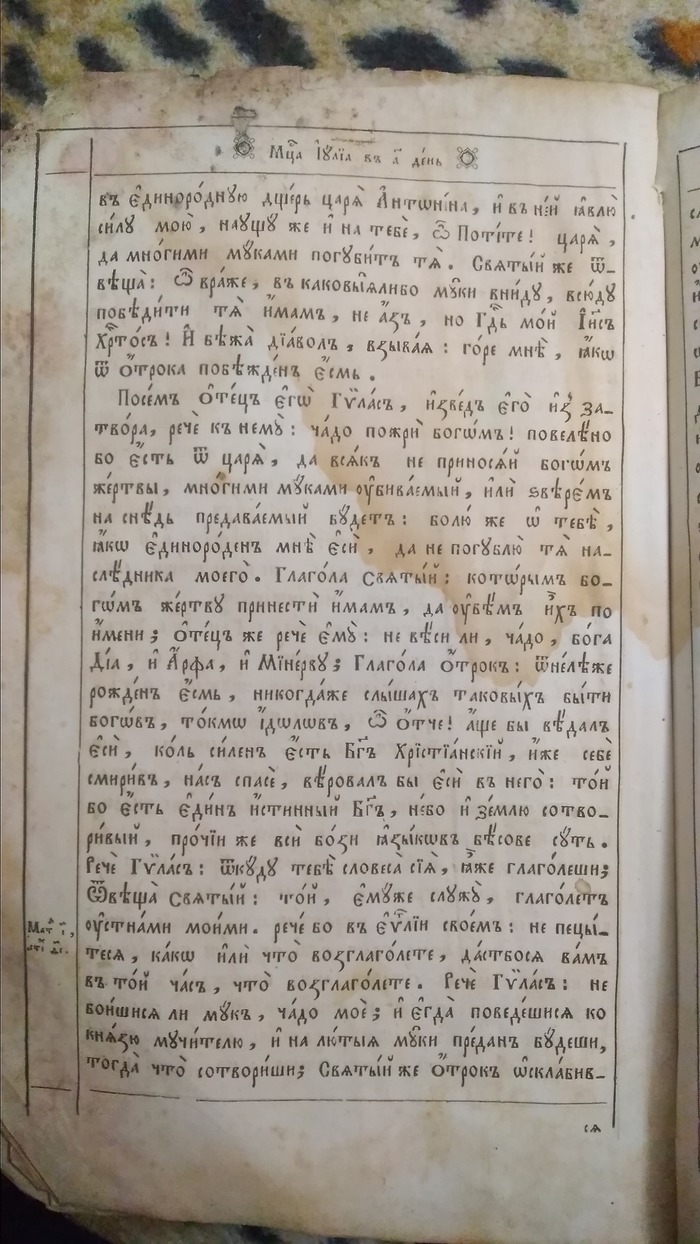 Мⷭ҇ца І҆ꙋ́лїа въ а҃ де́нь
въ є҆диноро́днꙋю дще́рь царѧ̀ А҆нтѡні́на, и҆ въ не́й ꙗ҆влю̀
си́лꙋ мою̀, наꙋщꙋ́ же и҆ на тебѐ, ѽ Поті́те! царѧ̀,
да мно́гими мꙋ́ками погꙋби́тъ тѧ̀. Свѧты́й же ѿ-
вѣща̀: ѽ вра́же, въ каковы̑ѧлибо мꙋ́ки вни́дꙋ, всю́дꙋ
побѣди́ти тѧ̀ и҆́мамъ, не а҆́зъ, но Гдⷭ҇ь мо́й І҆и҃съ
Хрⷭ҇то́съ! И҆ бѣжа̀ дїа́волъ, взыва́ѧ: го́ре мнѣ̀, ꙗ҆́кѡ
ѿ ѻ҆́трока побѣжде́нъ є҆́смь.
Посе́мъ ѻ҆те́цъ є҆гѡ̀ Гѷла́съ, и҆зве́дъ є҆го̀ и҆з̾ за-
тво́ра, речѐ къ немꙋ̀: ча́до пожрѝ богѡ́мъ! повелѣ́но
бо є҆́сть ѿ царѧ̀, да всѧ́къ не приносѧ́й богѡ́мъ
же́ртвы, мно́гими мꙋ́ками ᲂу҆бива́емый, и҆лѝ ѕвѣрє́мъ
на снѣ́дь предава́емый бꙋ́детъ: болю́ же ѡ҆ тебѣ̀,
ꙗ҆́кѡ є҆диноро́денъ мнѣ̀ є҆сѝ, да не погꙋблю̀ тѧ̀ на-
слѣ́дника моего̀. Глаго́ла свѧты́й: кото́рымъ бо-
гѡ́мъ же́ртвꙋ принестѝ и҆́мамъ, да ᲂу҆вѣ́мъ и҆̀хъ по
и҆́мени; ѻ҆те́цъ же речѐ є҆мꙋ̀: не вѣ́си ли, ча́до, бо́га
Ді́а, и҆ А҆́рфа, и҆ Мїне́рвꙋ; Глаго́ла ѻ҆́трокъ: ѿне́лѣже
рожде́нъ є҆́смь, никогда́же слы́шахъ таковы́хъ бы́ти
богѡ́въ, то́кмѡ і҆́дѡлѡвъ, ѽ ѻ҆́тче! а҆́ще бы вѣ́далъ
є҆сѝ, ко́ль си́ленъ є҆́сть Бг҃ъ Хрїстїа́нскїй, и҆́же себѐ
смири́въ, на́съ спасѐ, вѣ́ровалъ бы є҆сѝ въ него̀: то́й
бо є҆́сть є҆ди́нъ и҆́стинный Бг҃ъ, не́бо и҆ зе́млю сотво-
ри́вый, про́чїи же всѝ бо́зи ꙗ҆зы́кѡвъ бѣ́сове сꙋ́ть.
Речѐ Гѷла́съ: ѿкꙋ́дꙋ тебѣ̀ словеса̀ сїѧ̑, ꙗ҆̀же глаго́леши;
Ѿвѣща̀ свѧты́й: то́й, є҆мꙋ́же слꙋжꙋ̀, глаго́летъ
ᲂу҆стна́ми мои́ми. рече́ бо въ є҆ѵⷢ҇лїи свое́мъ: не пецы́-
тесѧ, ка́кѡ и҆лѝ что̀ возглаго́лете, да́стбосѧ ва́мъ
въ то́й ча́съ, что̀ возглаго́лете. Речѐ Гѷла́съ: не
бои́шисѧ ли мꙋ́къ, ча́до моѐ; и҆ є҆гда̀ поведе́шисѧ ко
кнѧ́зю мꙋчи́телю, и҆ на лю́тыѧ мꙋ́ки пре́данъ бꙋ́деши,
тогда̀ что̀ сотвори́ши; Свѧты́й же ѻ҆́трокъ ѡ҆скла́бив-
Матⷴ҇ і҃,
ст҃и ѳ҃і.
сѧ